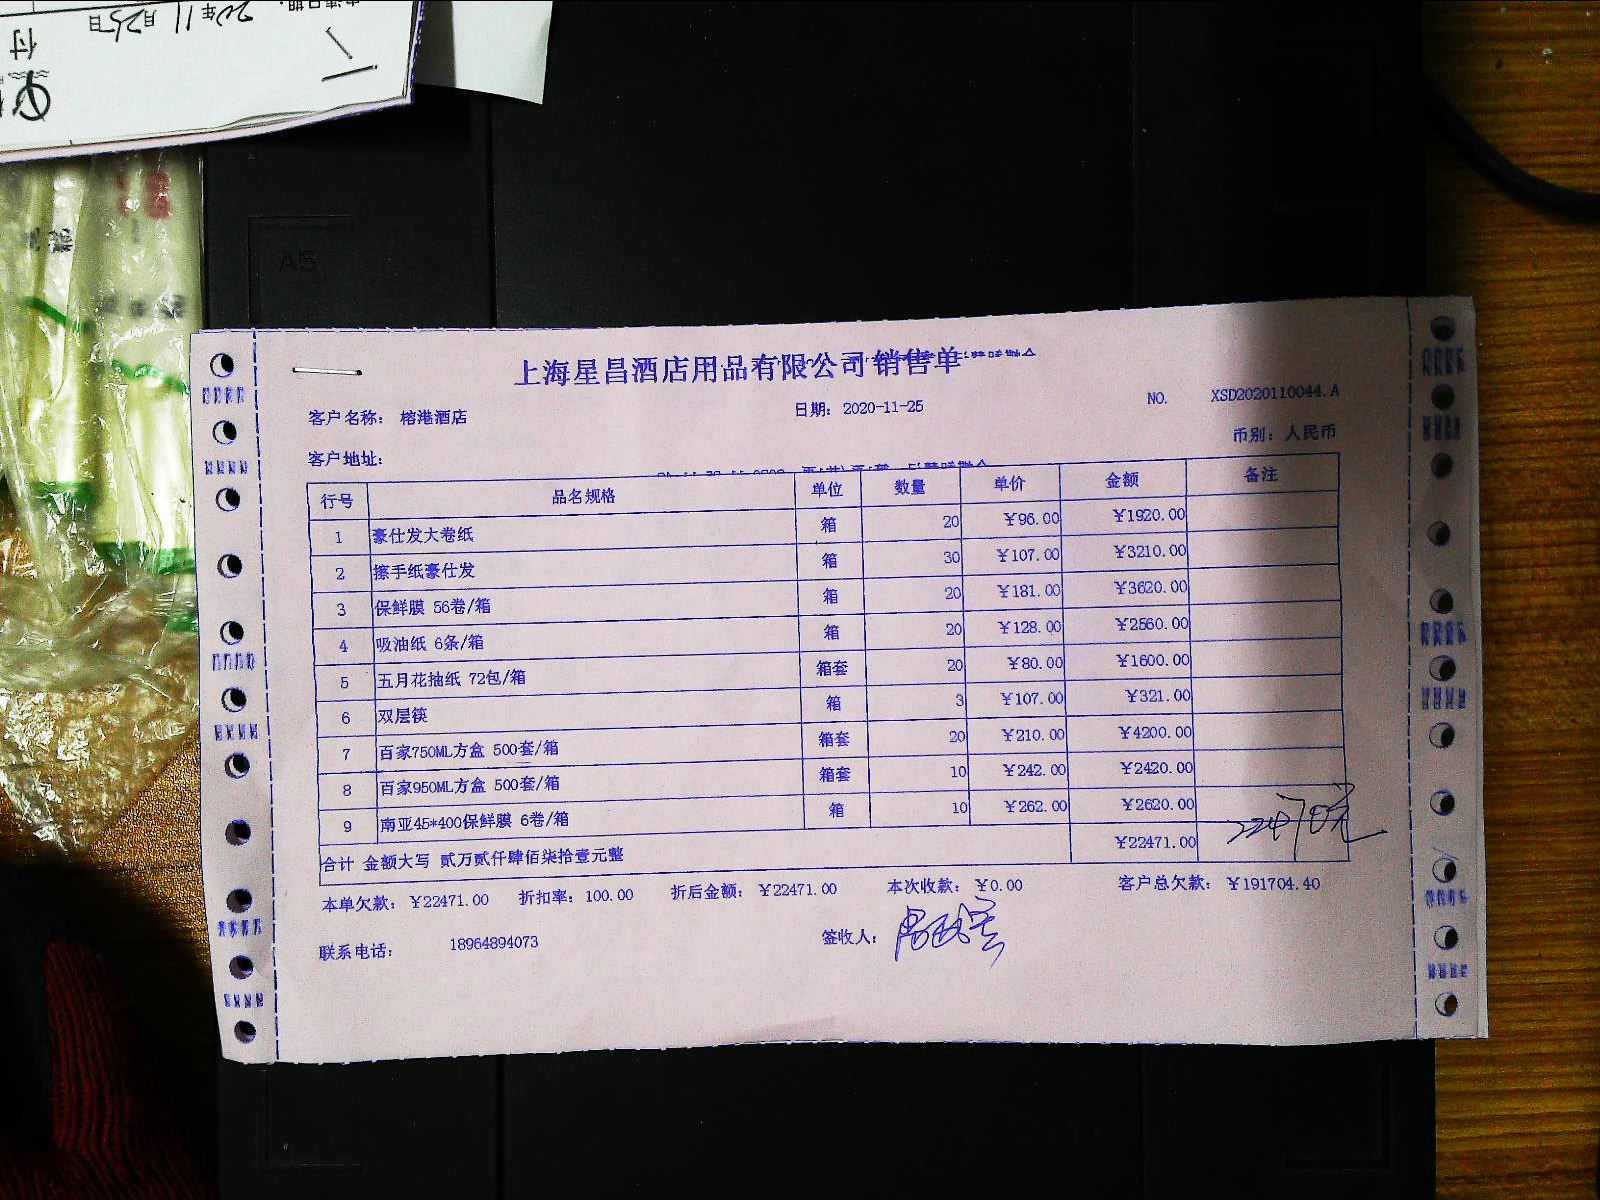 20年11月25日
付
A5
上海星昌酒店用品有限公司销售单
客户名称: 榕港酒店 日期: 2020-11-25 NO. XSD2020110044.A
客户地址: 币别: 人民币
行号 品名规格 单位 数量 单价 金额 备注
1 豪仕发大卷纸 箱 20 ¥96.00 ¥1920.00
2 擦手纸豪仕发 箱 30 ¥107.00 ¥3210.00
3 保鲜膜 56卷/箱 箱 20 ¥181.00 ¥3620.00
4 吸油纸 6条/箱 箱 20 ¥128.00 ¥2560.00
5 五月花抽纸 72包/箱 箱套 20 ¥80.00 ¥1600.00
6 双层筷 箱 3 ¥107.00 ¥321.00
7 百家750ML方盒 500套/箱 箱套 20 ¥210.00 ¥4200.00
8 百家950ML方盒 500套/箱 箱套 10 ¥242.00 ¥2420.00
9 南亚45*400保鲜膜 6卷/箱 箱 10 ¥262.00 ¥2620.00
合计 金额大写 贰万贰仟肆佰柒拾壹元整 ¥22471.00 22470元
本单欠款: ¥22471.00 折扣率: 100.00 折后金额: ¥22471.00 本次收款: ¥0.00 客户总欠款: ¥191704.40
联系电话: 18964894073 签收人: